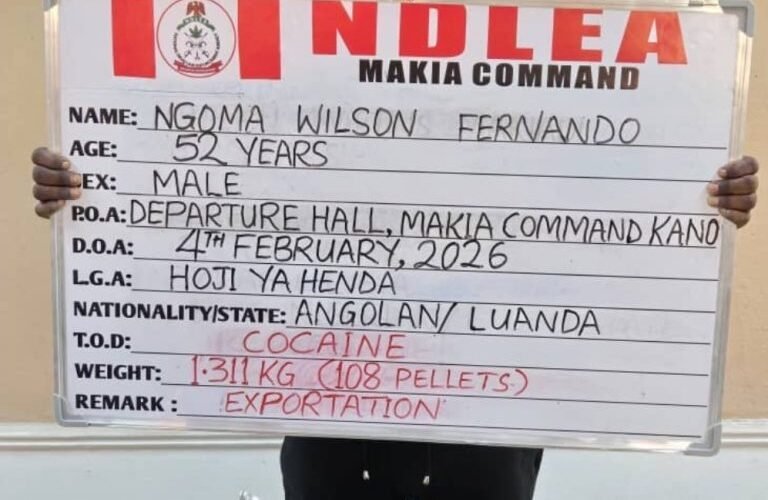 NDLEA
MAKIA COMMAND
NAME: NGOMA WILSON FERNANDO
AGE: 52 YEARS
EX: MALE
P.O.A: DEPARTURE HALL, MAKIA COMMAND KANO
D.O.A: 4TH FEBRUARY, 2026
L.G.A: HOJI YA HENDA
NATIONALITY/STATE: ANGOLAN/ LUANDA
T.O.D: COCAINE
WEIGHT: 1.311 KG (108 PELLETS)
REMARK : EXPORTATION